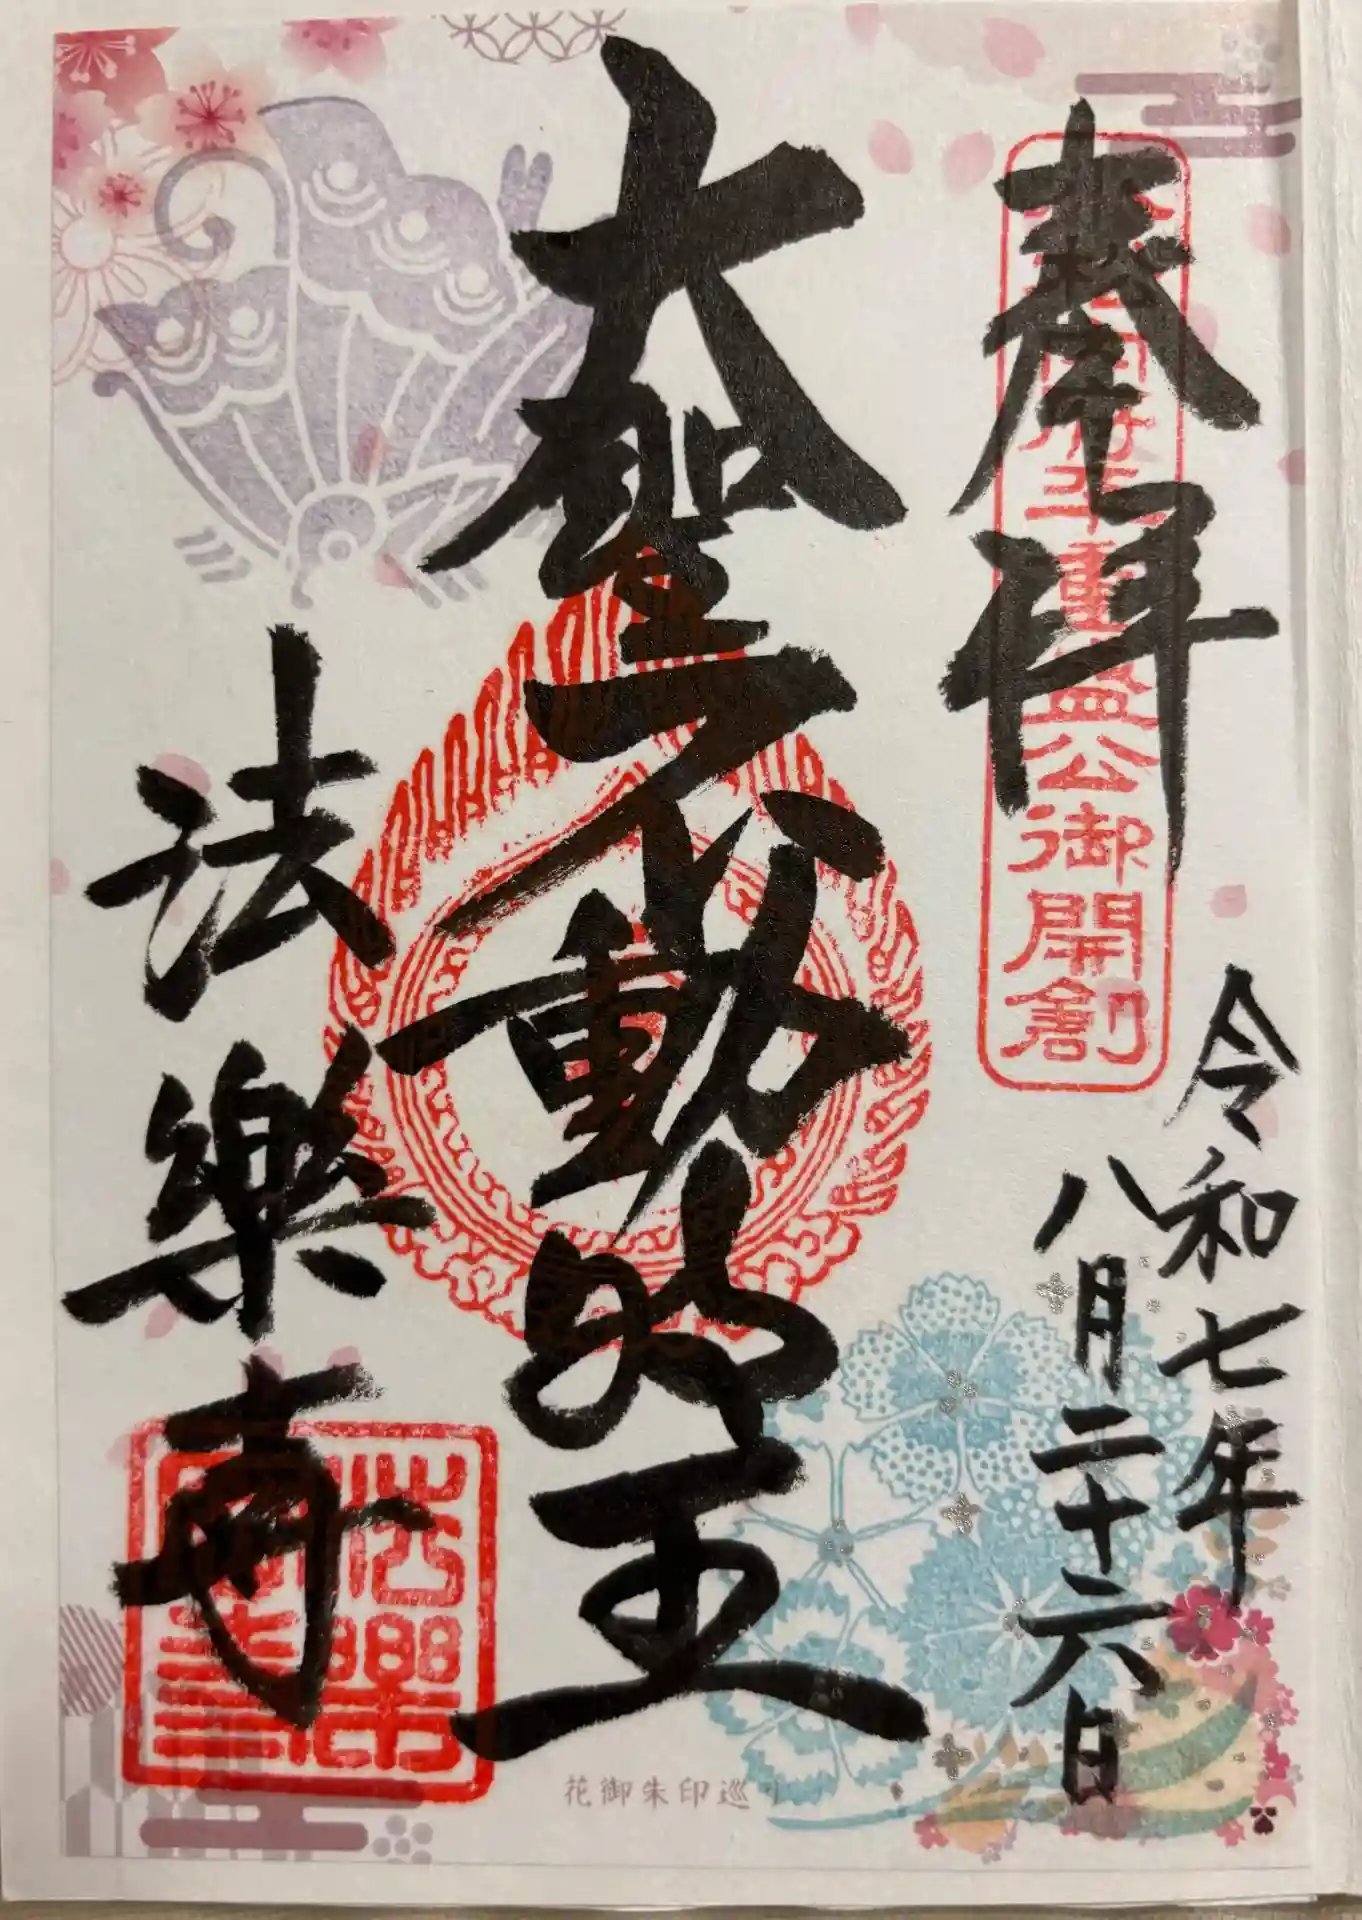 奉拝
小松内府平重盛公御開創
令和七年
八月二十六日
大聖不動明王
法樂寺
法樂
花御朱印巡り